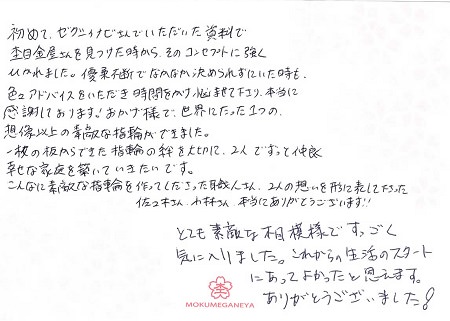 初めて、ゼクシィナビさんでいただいた資料で
杢目金屋さんを見つけた時から、そのコンセプトに強く
ひかれました。優柔不断でなかなか決められずにいた時も、
色々アドバイスをいただき時間をかけ悩ませて下さり、本当に
感謝しております!おかげ様で、世界にたった1つの、
想像以上の素敵な指輪ができました。
一枚の板からできた指輪の絆を大切に、2人でずって仲良く
幸せな家庭を築いていきたいです。
こんなに素敵な指輪を作ってくださった職人さん、2人の想いを形に表して下さった
佐々木さん、小林さん、本当にありがとうございます!!
とても素敵な木目模様ですっごく
気に入りました。これからの生活のスタート
にあってよかったと思えます。
ありがとうございました!
MOKUMEGANEYA